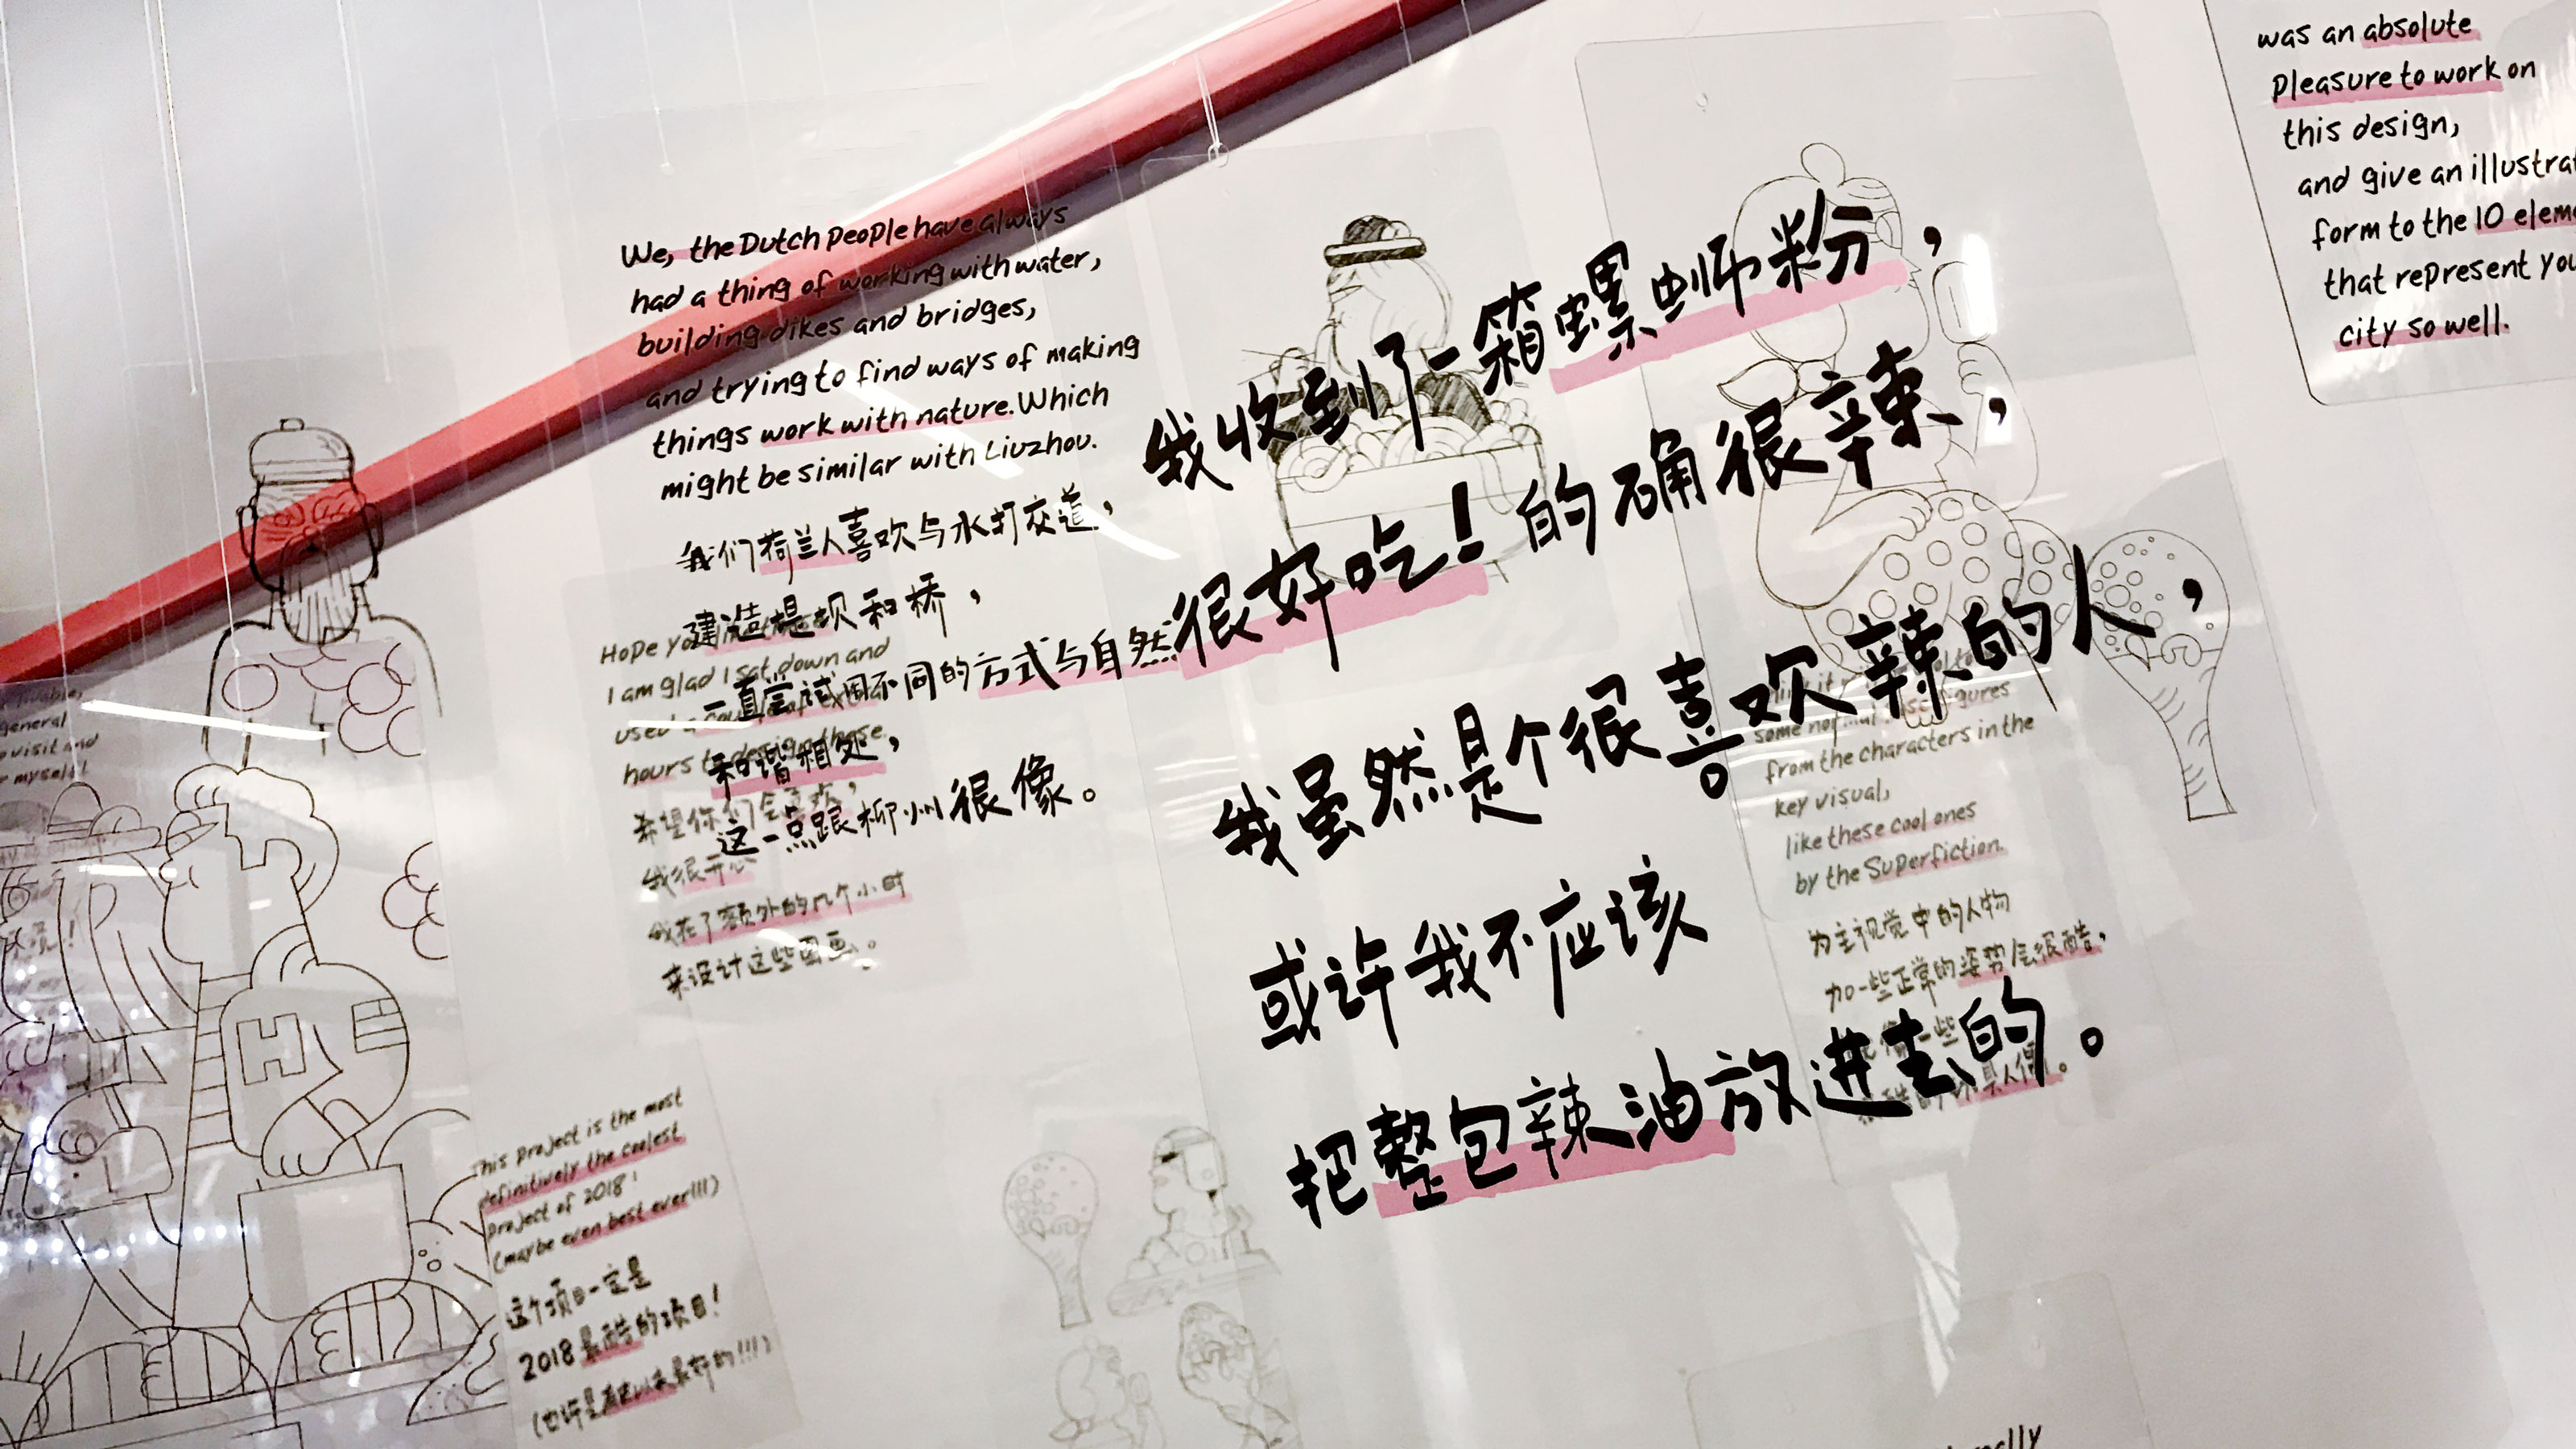 We, the Dutch people have always
had a thing of working with water,
building dikes and bridges,
and trying to find ways of making
things work with nature. Which
might be similar with Liuzhou.
我们荷兰人喜欢与水打交道，
建造堤坝和桥，
一直尝试用不同的方式与自然
和谐相处，
这一点跟柳州很像。
Hope you
I am glad I sat down and
used a couple of extra
hours to design these.
希望你们会喜欢，
我很开心
我花了额外的几个小时
来设计这些图画。
我收到了一箱螺蛳粉，
很好吃！的确很辣，
我虽然是个很喜欢辣的人，
或许我不应该
把整包辣油放进去的。
was an absolute
pleasure to work on
this design,
and give an
form to the 10
that represent
city so well.
some normal figures
from the characters in the
key visual,
like these cool ones
by the Superfiction.
为主视觉中的人物
加一些正常的姿势会很酷，
general
visit and
myself!
This project is the most
definitively the coolest
project of 2018!
(maybe even best ever!!!)
这个项目一定是
2018最酷的项目!
(也许是有史以来最好的!!!)
H
H